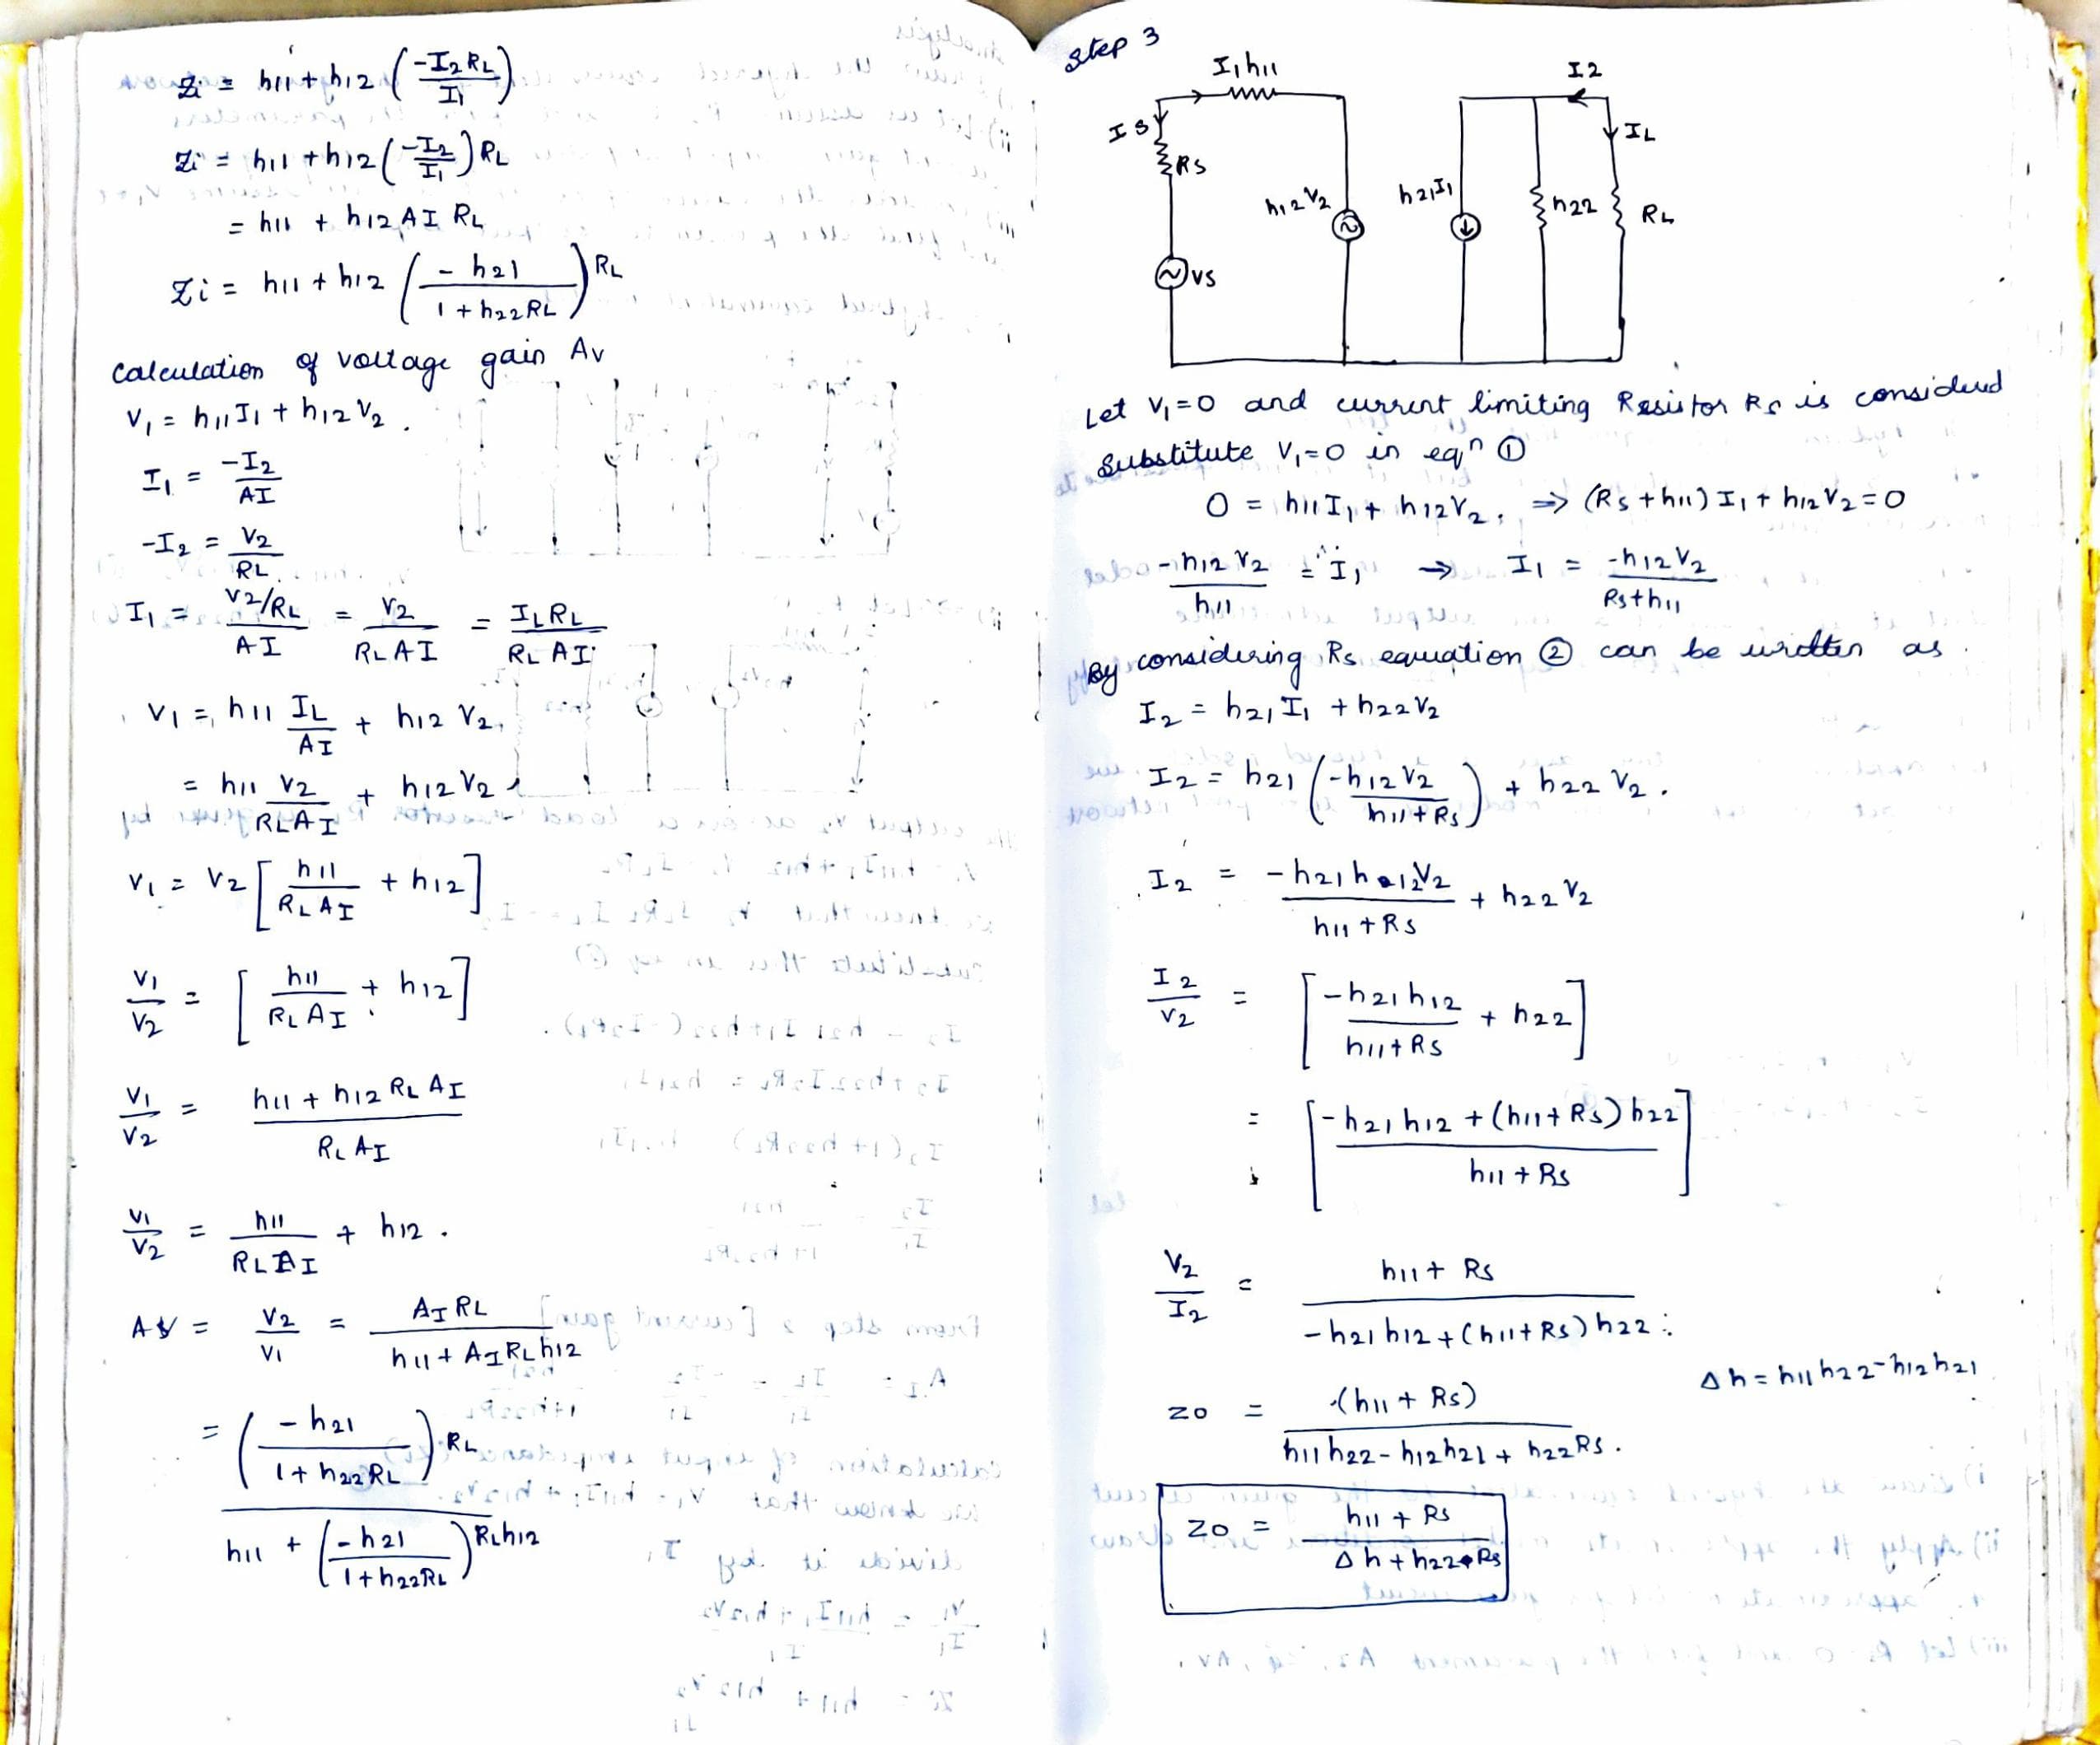 Zi = h11 + h12 (-I2 RL / I1)
Zi = h11 + h12 (-I2 / I1) RL
= h11 + h12 AI RL
Zi = h11 + h12 (-h21 / 1 + h22RL) RL
Calculation of voltage gain Av
V1 = h11I1 + h12 V2.
I1 = -I2 / AI
-I2 = V2 / RL
I1 = V2/RL / AI = V2 / RLAI = ILRL / RL AI
V1 = h11 IL / AI + h12 V2,
= h11 V2 / RLAI + h12 V2
V1 = V2 [h11 / RL AI + h12]
V1 / V2 = [h11 / RL AI + h12]
V1 / V2 = h11 + h12 RL AI / RL AI
V1 / V2 = h11 / RL AI + h12.
AV = V2 / V1 = AI RL / h11 + AI RL h12
= (-h21 / 1 + h22RL) RL / h11 + (-h21 / 1 + h22RL) RLh12
Step 3
I1h11
I2
Is
IL
Rs
h12V2
h21I1
h22
RL
Vs
Let V1=0 and current limiting Resistor Rs is considered
Substitute V1=0 in eqn ①
0 = h11I1 + h12V2, ⇒ (Rs + h11) I1 + h12 V2 = 0
-h12 V2 / h11 = I1 → I1 = -h12V2 / Rs+h11
By considering Rs equation ② can be written as
I2 = h21I1 + h22V2
I2 = h21 (-h12 V2 / h11+Rs) + h22 V2.
I2 = -h21h12V2 / h11 + Rs + h22V2
I2 / V2 = [-h21h12 / h11+Rs + h22]
= [-h21h12 + (h11+Rs)h22 / h11 + Rs]
V2 / I2 = h11 + Rs / -h21h12 + (h11+Rs)h22
Δh = h11h22-h12h21
Zo = (h11 + Rs) / h11h22 - h12h21 + h22Rs.
Zo = h11 + Rs / Δh + h22•Rs